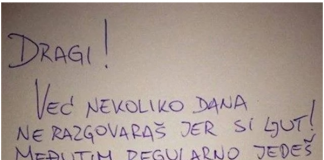 DRAGI!
VEĆ NEKOLIKO DANA
NE RAZGOVARAŠ JER SI LJUT!
MEĐUTIM REGULARNO JEDEŠ